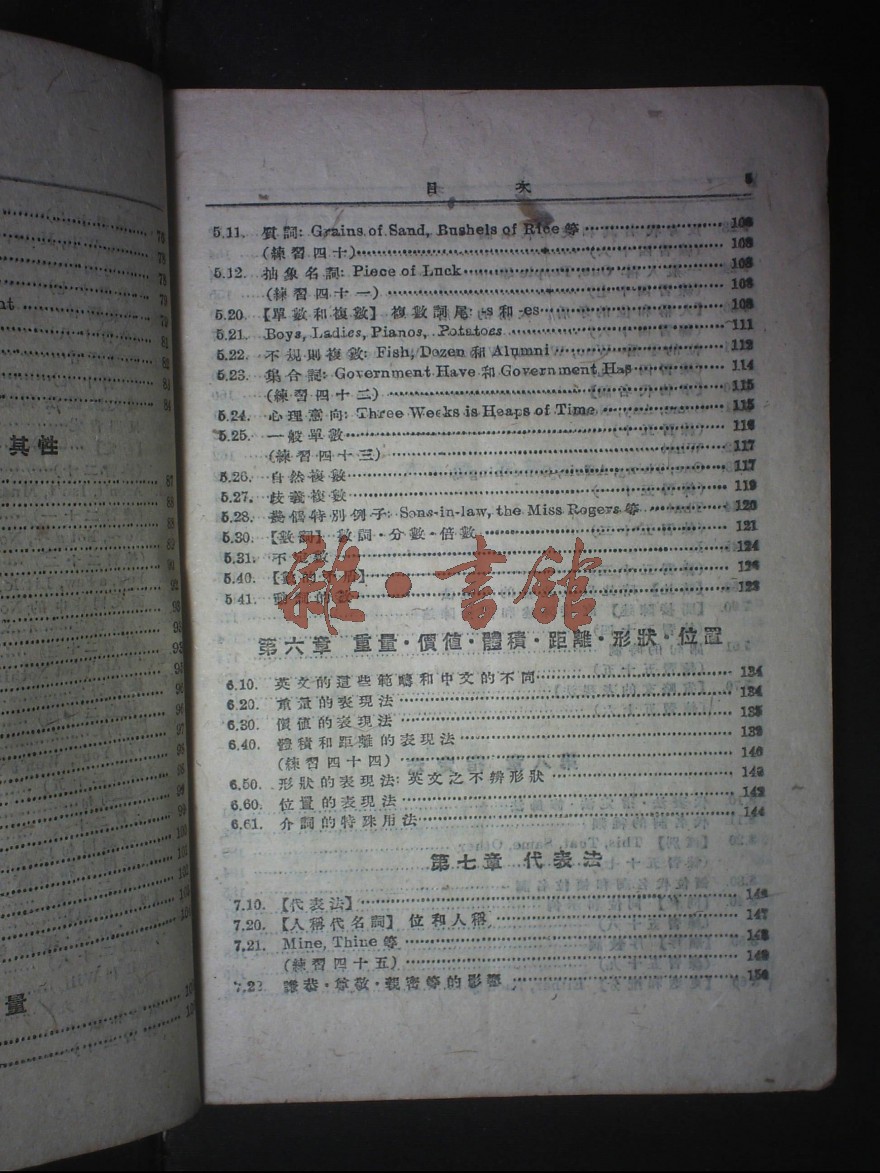 目 次 5
5.11. 質詞: Grains of Sand, Bushels of Rice 等 108
(練習四十) 108
5.12. 抽象名詞: Piece of Luck 108
(練習四十一) 108
5.20. 【單數和複數】 複數詞尾: -s 和 -es 108
5.21. Boys, Ladies, Pianos, Potatoes 111
5.22. 不規則複數: Fish, Dozen 和 Alumni 112
5.23. 集合詞: Government Have 和 Government Has 114
(練習四十二) 115
5.24. 心理意向: Three Weeks is Heaps of Time 115
5.25. 一般單數 116
(練習四十三) 117
5.26. 自然複數 117
5.27. 歧義複數 119
5.28. 幾個特別例子: Sons-in-law, the Miss Rogers 等 120
5.30. 【數詞】 數詞·分數·倍數 121
5.31. 不 數 124
5.40.
5.41. 的
雜·書館
第六章 重量·價值·體積·距離·形狀·位置
6.10. 英文的這些範疇和中文的不同 134
6.20. 重量的表現法 134
6.30. 價值的表現法 135
6.40. 體積和距離的表現法
(練習四十四) 140
6.50. 形狀的表現法: 英文之不辨形狀 142
6.60. 位置的表現法 143
6.61. 介詞的特殊用法 144
第七章 代表法
7.10. 【代表法】 146
7.20. 【人稱代名詞】 位和人稱 147
7.21. Mine, Thine 等 148
(練習四十五) 149
7.22 謙恭·尊敬·親密等的影響 150
76
78
78
79
81
82
84
其性
87
88
量